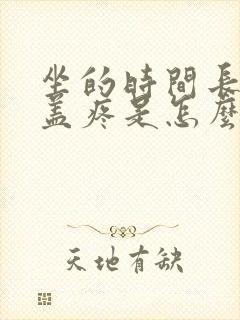 坐的時間長
蓋疼是怎麼
天地有缺